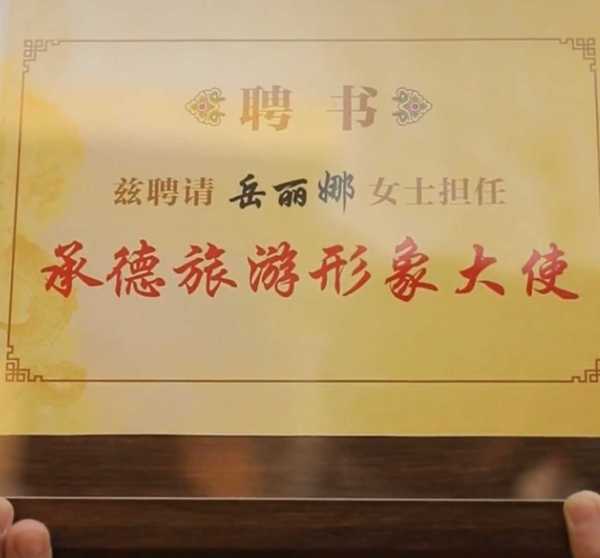 聘书
兹聘请 岳丽娜 女士担任
承德旅游形象大使